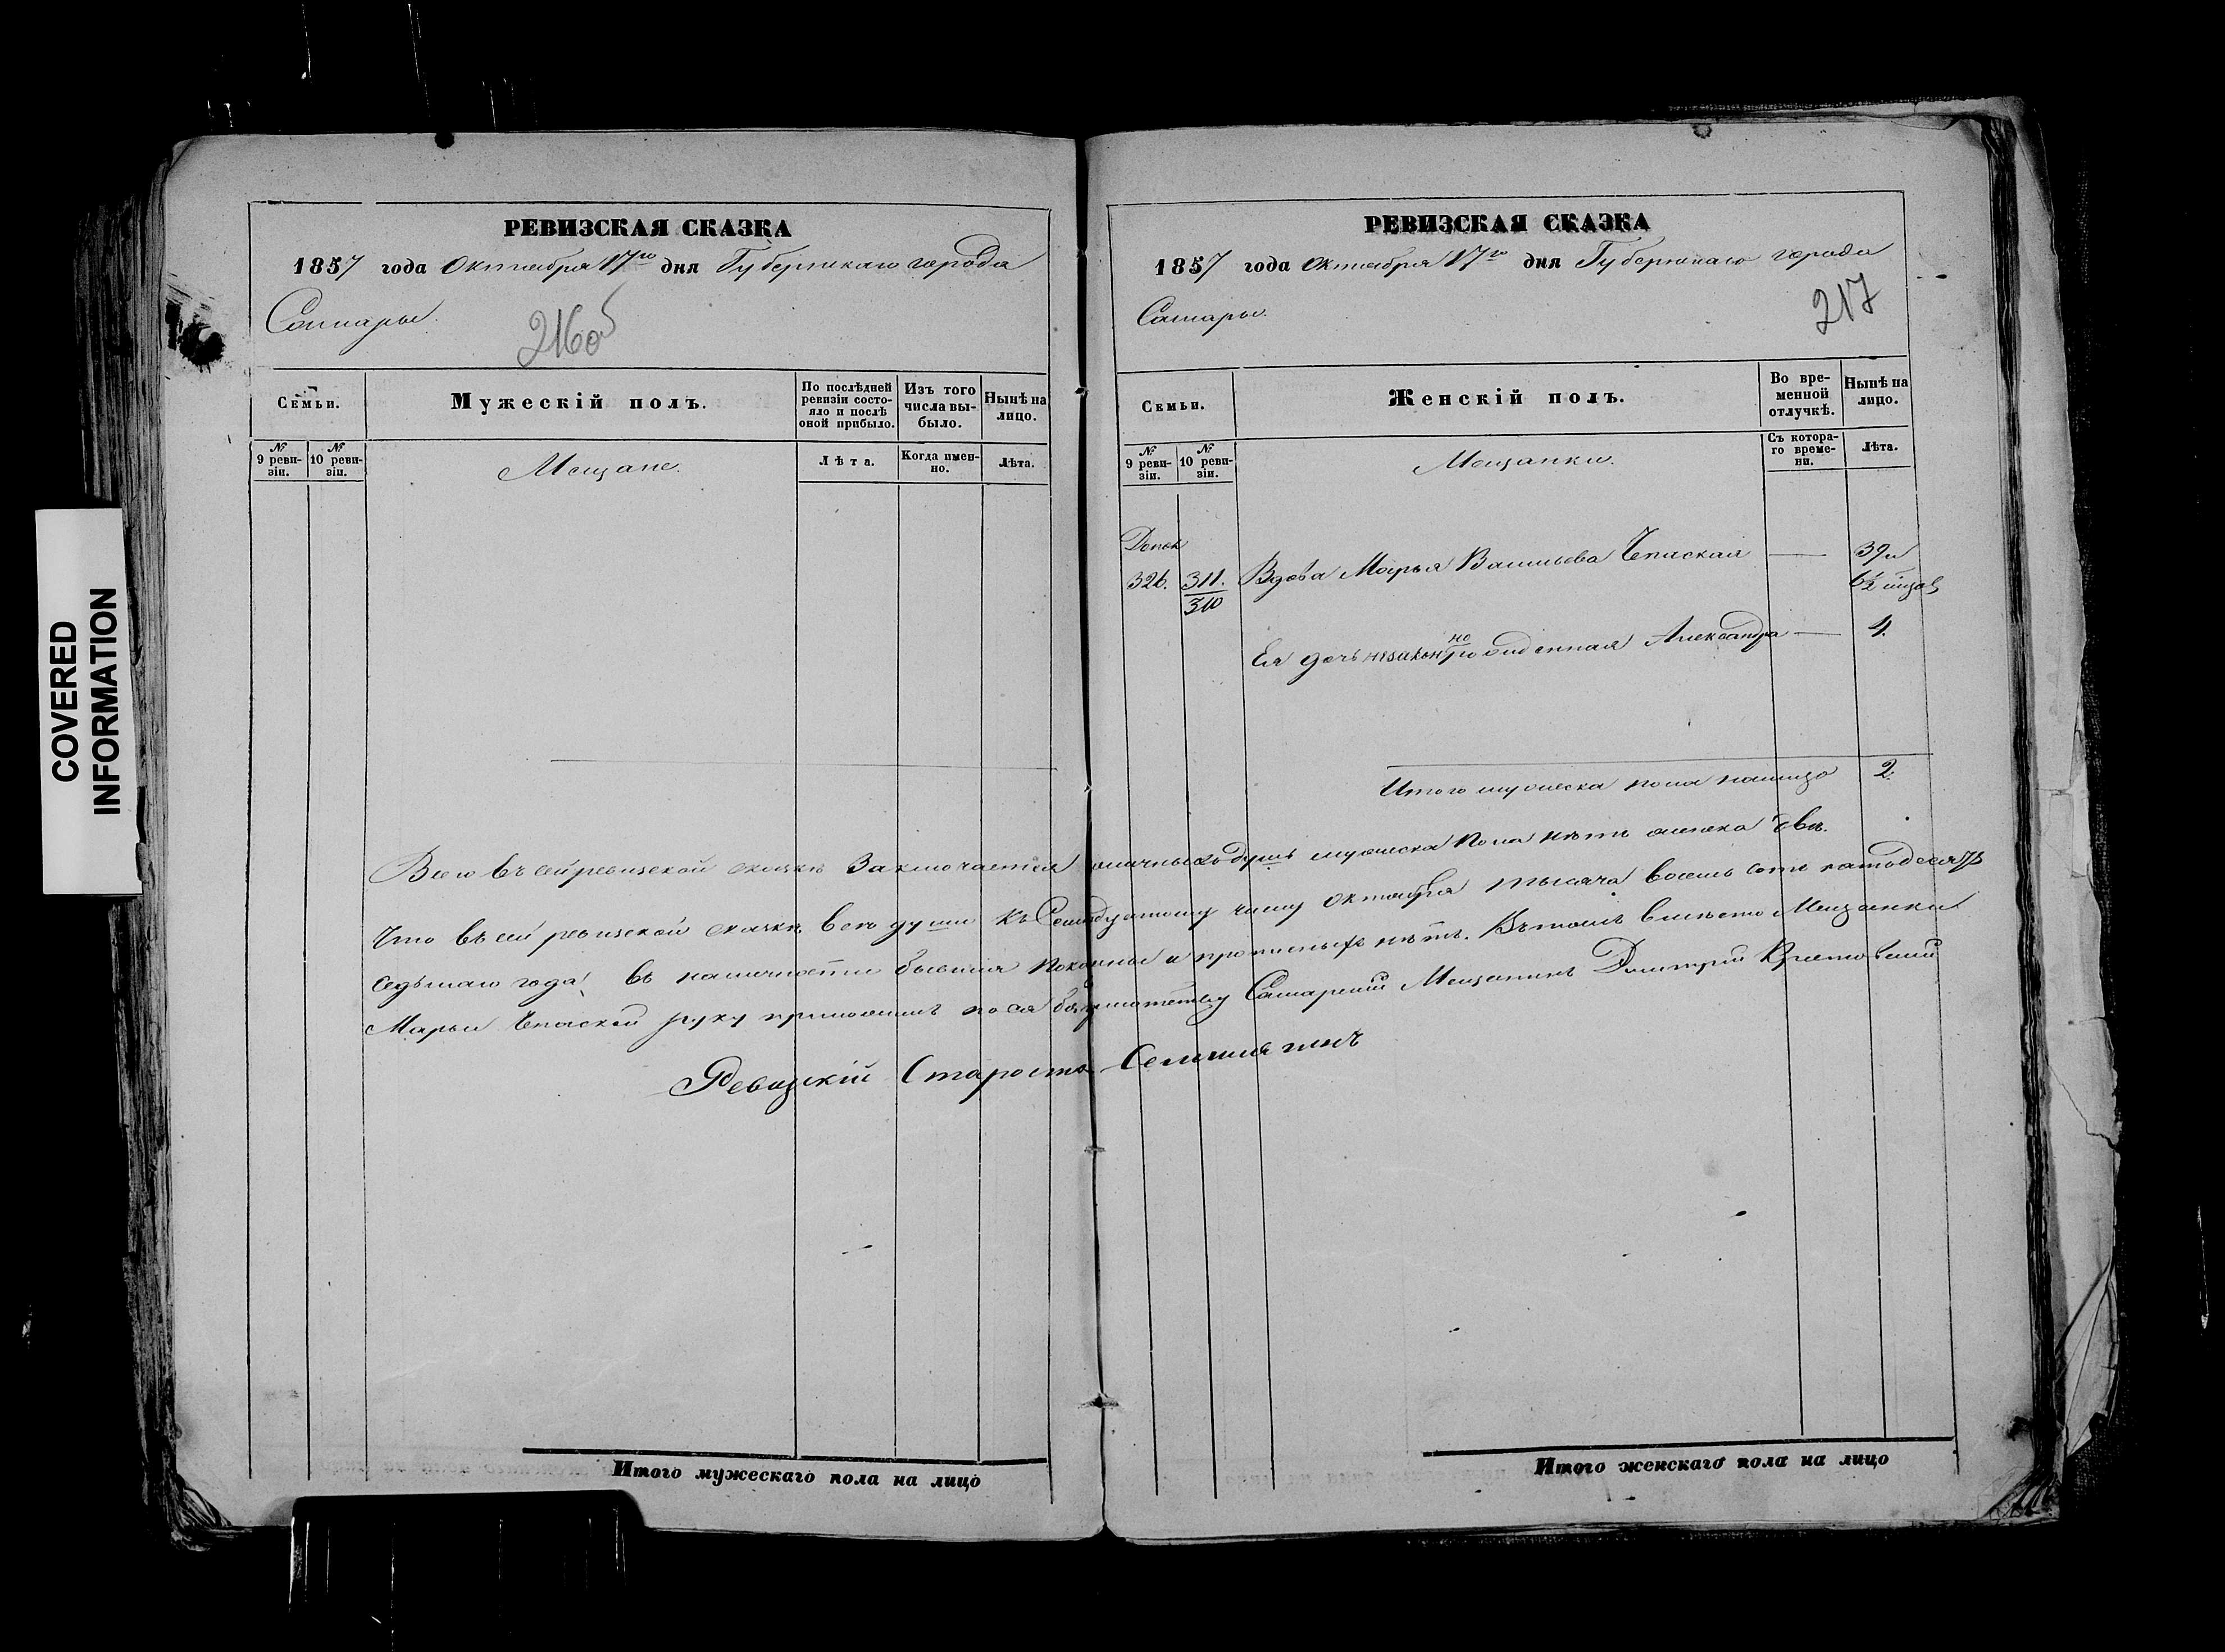 COVERED
INFORMATION
РЕВИЗСКАЯ СКАЗКА
1857 года Октября 17го дня Губернскаго города
Самары.
216об
Семьи.
Мужескій полъ.
По послѣдней
ревизіи состо-
яло и послѣ
оной прибыло.
Изъ того
числа вы-
было.
Нынѣ на
лицо.
№
9 реви-
зіи.
№
10 реви-
зіи.
Мещане.
Лѣта.
Когда имен-
но.
Лѣта.
Итого мужескаго пола на лицо
РЕВИЗСКАЯ СКАЗКА
1857 года Октября 17го дня Губернскаго города
Самары.
217
Семьи.
Женскій полъ.
Во вре-
менной
отлучкѣ.
Нынѣ на
лицо.
№
9 реви-
зіи.
№
10 реви-
зіи.
Мещанки.
Съ котора-
го време-
ни.
Лѣта.
326. 311. Вдова Марья Васильева — 39 и
310
Ея дочь незаконнорожденная Александра — 4.
Итого пола налицо 2.
Всего въ сей ревизской сказкѣ Заключается наличныхъ душъ мужеска пола нѣтъ женска двѣ.
Что въ сей ревизской сказкѣ всѣ души къ Семнадцатому числу октября тысяча восемь сотъ пятьдесятъ
седьмаго года въ наличности бывшія показаны и прописныхъ нѣтъ. Въ томъ вмѣсто Мещанки
Марьи руку приложилъ Самарскій Мещанинъ Дмитрій
Ревизскій Староста
Итого женскаго пола на лицо